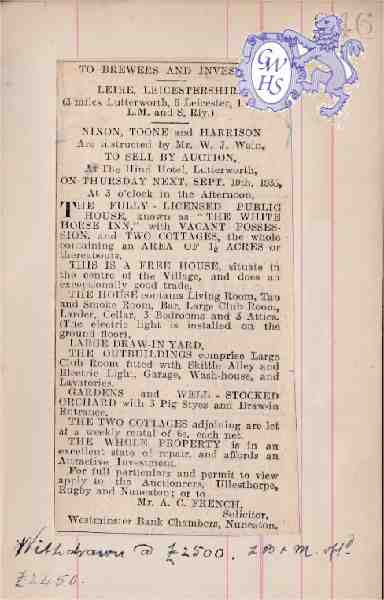 46
GWHS
TO BREWERS AND INVES
LEIRE, LEICESTERSHIR
(3 miles Lutterworth, 8 Leicester, 1
L.M. and S. Rly.)
NIXON, TOONE and HARRISON
Are instructed by Mr. W. J. Wain,
TO SELL BY AUCTION,
At The Hind Hotel, Lutterworth,
ON THURSDAY NEXT, SEPT. 19th, 1935,
At 3 o'clock in the Afternoon,
THE FULLY-LICENSED PUBLIC
HOUSE, known as "THE WHITE
HORSE INN," with VACANT POSSES-
SION, and TWO COTTAGES, the whole
containing an AREA OF 1½ ACRES or
thereabouts.
THIS IS A FREE HOUSE, situate in
the centre of the Village, and does an
exceptionally good trade.
THE HOUSE contains Living Room, Tap
and Smoke Room, Bar, Large Club Room,
Larder, Cellar, 3 Bedrooms and 3 Attics.
(The electric light is installed on the
ground floor).
LARGE DRAW-IN YARD.
THE OUTBUILDINGS comprise Large
Club Room fitted with Skittle Alley and
Electric Light, Garage, Wash-house, and
Lavatories.
GARDENS and WELL-STOCKED
ORCHARD with 3 Pig Styes and Draw-in
Entrance.
THE TWO COTTAGES adjoining are let
at a weekly rental of 6s. each net.
THE WHOLE PROPERTY is in an
excellent state of repair, and affords an
Attractive Investment.
For full particulars and permit to view
apply to the Auctioneers, Ullesthorpe,
Rugby and Nuneaton; or to
Mr. A. C. FRENCH,
Solicitor,
Westminster Bank Chambers, Nuneaton.
Withdrawn @ £2500.
£2450.